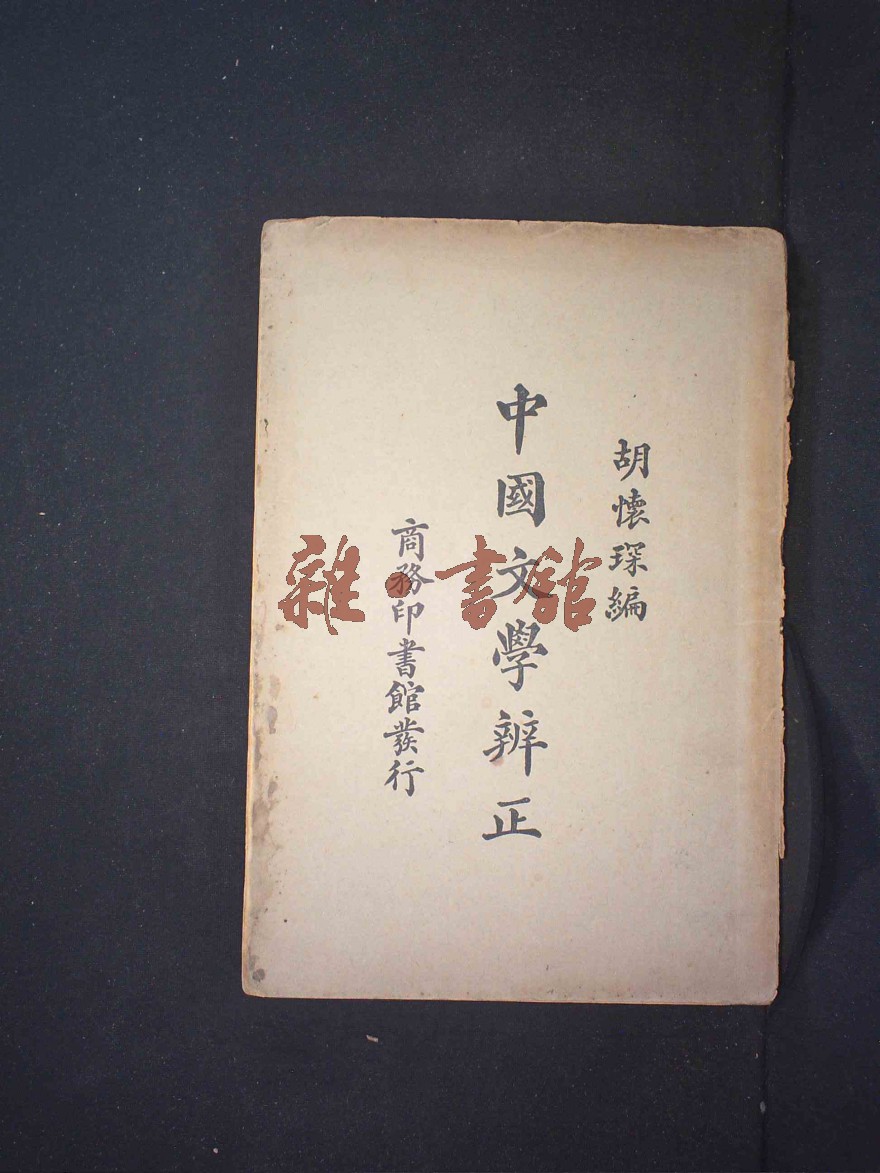 胡懷琛編
中國文學辨正
商務印書館發行
雜·書館